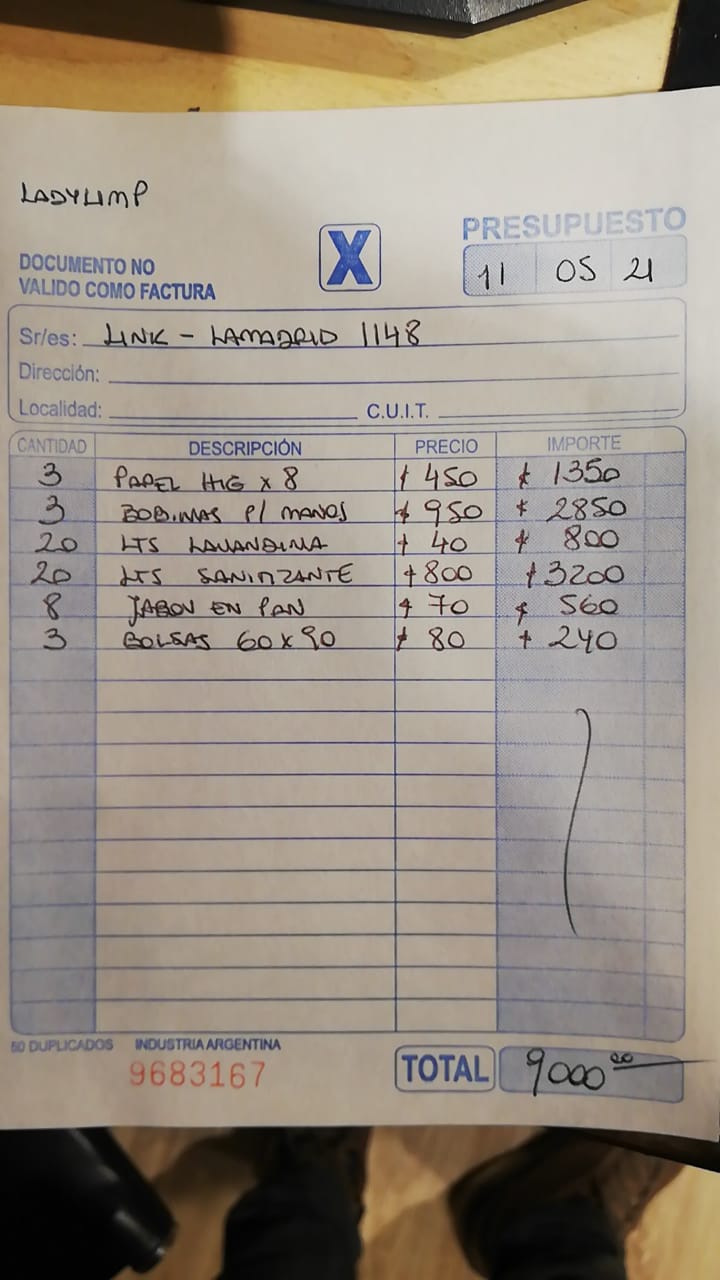 LADYLIMP
PRESUPUESTO
X
DOCUMENTO NO
VALIDO COMO FACTURA
11 05 21
Sr/es: LINK - LAMADRID 1148
Dirección:
Localidad: C.U.I.T.
CANTIDAD DESCRIPCIÓN PRECIO IMPORTE
3 PAPEL HIG x 8 $ 450 $ 1350
3 BOBINAS P/ MANOS $ 950 $ 2850
20 LTS LAVANDINA $ 40 $ 800
20 LTS SANITIZANTE $ 800 $ 3200
8 JABON EN PAN $ 70 $ 560
3 BOLSAS 60 x 90 $ 80 $ 240
50 DUPLICADOS INDUSTRIA ARGENTINA
9683167
TOTAL 9000 00